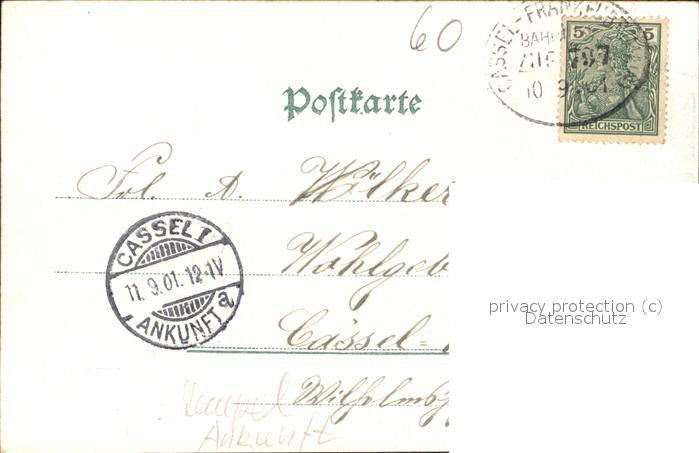 60
CASSEL-FRANKFURT
BAHN
ZUG 787
10 9 01
5 5
REICHSPOST
Postkarte
Frl. A. Wölker
Wohlgeb
Cassel=
Wilhelmsh
CASSEL 1
11.9.01.12-1V
ANKUNFT a
Stempel
Ankunft
privacy protection (c)
Datenschutz